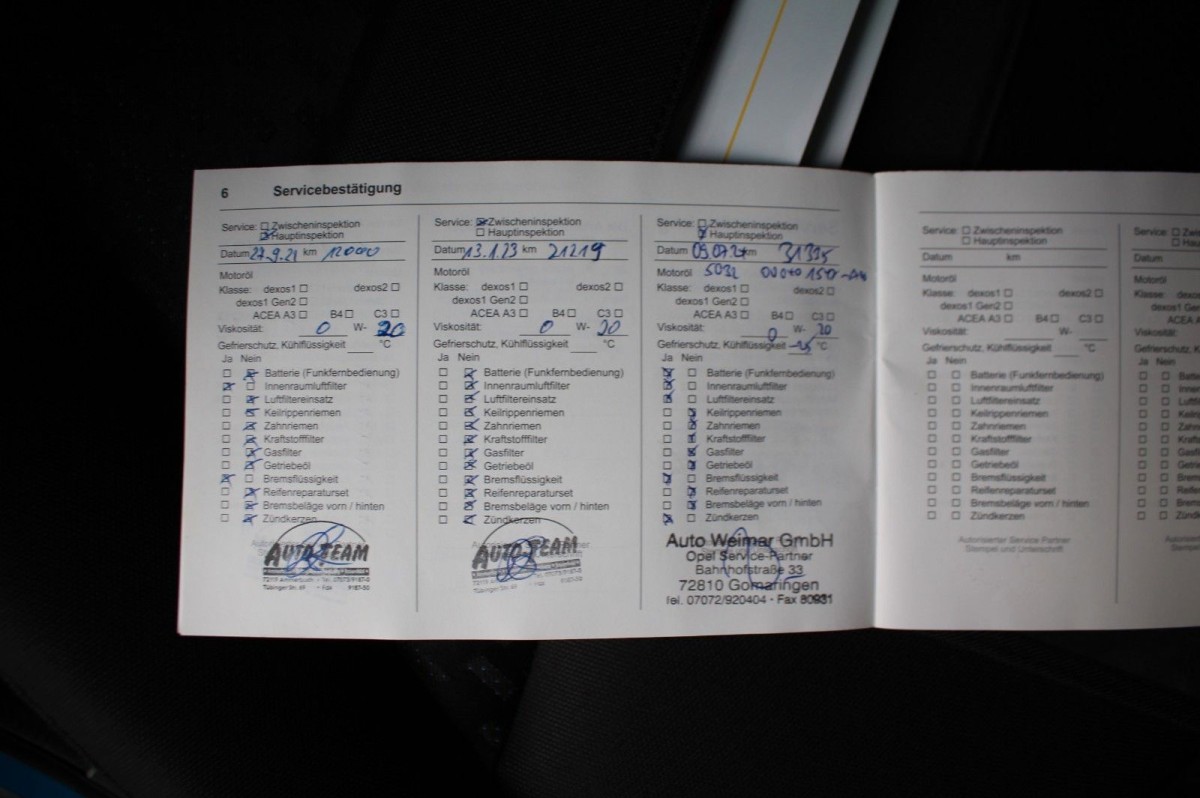 6 Servicebestätigung
Service: ☐ Zwischeninspektion
☒ Hauptinspektion
Datum 27.9.21 km 12000
Motoröl
Klasse: dexos1 ☐ dexos2 ☐
dexos1 Gen2 ☐
ACEA A3 ☐ B4 ☐ C3 ☐
Viskosität: 0 W- 20
Gefrierschutz, Kühlflüssigkeit ____ °C
Ja Nein
☐ ☒ Batterie (Funkfernbedienung)
☒ ☐ Innenraumluftfilter
☐ ☒ Luftfiltereinsatz
☐ ☒ Keilrippenriemen
☐ ☒ Zahnriemen
☐ ☒ Kraftstofffilter
☐ ☒ Gasfilter
☐ ☒ Getriebeöl
☒ ☐ Bremsflüssigkeit
☐ ☒ Reifenreparaturset
☐ ☒ Bremsbeläge vorn / hinten
☐ ☒ Zündkerzen
AUTO TEAM
Service: ☒ Zwischeninspektion
☐ Hauptinspektion
Datum 13.1.23 km 21219
Motoröl
Klasse: dexos1 ☐ dexos2 ☐
dexos1 Gen2 ☐
ACEA A3 ☐ B4 ☐ C3 ☐
Viskosität: 0 W- 20
Gefrierschutz, Kühlflüssigkeit ____ °C
Ja Nein
☐ ☒ Batterie (Funkfernbedienung)
☐ ☒ Innenraumluftfilter
☐ ☒ Luftfiltereinsatz
☐ ☒ Keilrippenriemen
☐ ☒ Zahnriemen
☐ ☒ Kraftstofffilter
☐ ☒ Gasfilter
☐ ☒ Getriebeöl
☐ ☒ Bremsflüssigkeit
☐ ☒ Reifenreparaturset
☐ ☒ Bremsbeläge vorn / hinten
☐ ☒ Zündkerzen
AUTO TEAM
Service: ☐ Zwischeninspektion
☒ Hauptinspektion
Datum km
Motoröl
Klasse: dexos1 ☐ dexos2 ☐
dexos1 Gen2 ☐
ACEA A3 ☐ B4 ☐ C3 ☐
Viskosität: 0 W- 20
Gefrierschutz, Kühlflüssigkeit °C
Ja Nein
☒ ☐ Batterie (Funkfernbedienung)
☒ ☐ Innenraumluftfilter
☒ ☐ Luftfiltereinsatz
☐ ☒ Keilrippenriemen
☐ ☒ Zahnriemen
☐ ☒ Kraftstofffilter
☐ ☒ Gasfilter
☐ ☒ Getriebeöl
☒ ☐ Bremsflüssigkeit
☐ ☒ Reifenreparaturset
☐ ☒ Bremsbeläge vorn / hinten
☒ ☐ Zündkerzen
Auto Weimar GmbH
Opel Service-Partner
Bahnhofstraße 33
72810 Gomaringen
Tel. 07072/920404 - Fax 80931
Service: ☐ Zwischeninspektion
☐ Hauptinspektion
Datum km
Motoröl
Klasse: dexos1 ☐ dexos2 ☐
dexos1 Gen2 ☐
ACEA A3 ☐ B4 ☐ C3 ☐
Viskosität: ____ W- ____
Gefrierschutz, Kühlflüssigkeit ____ °C
Ja Nein
☐ ☐ Batterie (Funkfernbedienung)
☐ ☐ Innenraumluftfilter
☐ ☐ Luftfiltereinsatz
☐ ☐ Keilrippenriemen
☐ ☐ Zahnriemen
☐ ☐ Kraftstofffilter
☐ ☐ Gasfilter
☐ ☐ Getriebeöl
☐ ☐ Bremsflüssigkeit
☐ ☐ Reifenreparaturset
☐ ☐ Bremsbeläge vorn / hinten
☐ ☐ Zündkerzen
Autorisierter Service Partner
Stempel und Unterschrift
Service:
Datum
Motoröl
Klasse:
Viskosität:
Ja Nein